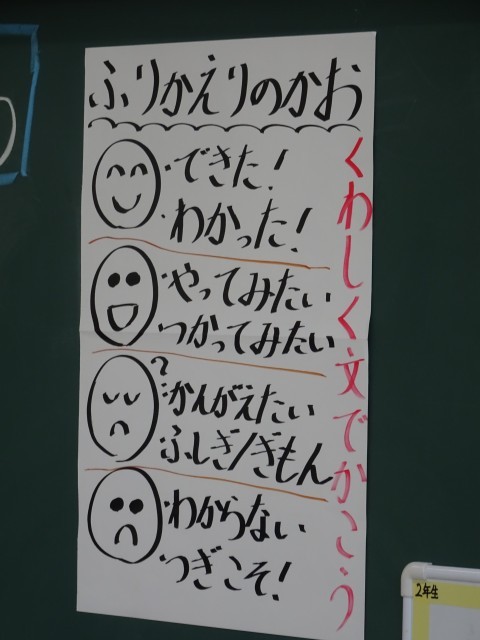 ふりかえりのかお
・できた!
・わかった!
・やってみたい
・つかってみたい
?
・かんがえたい
・ふしぎ/ぎもん
・わからない
・つぎこそ!
くわしく文でかこう
2年生